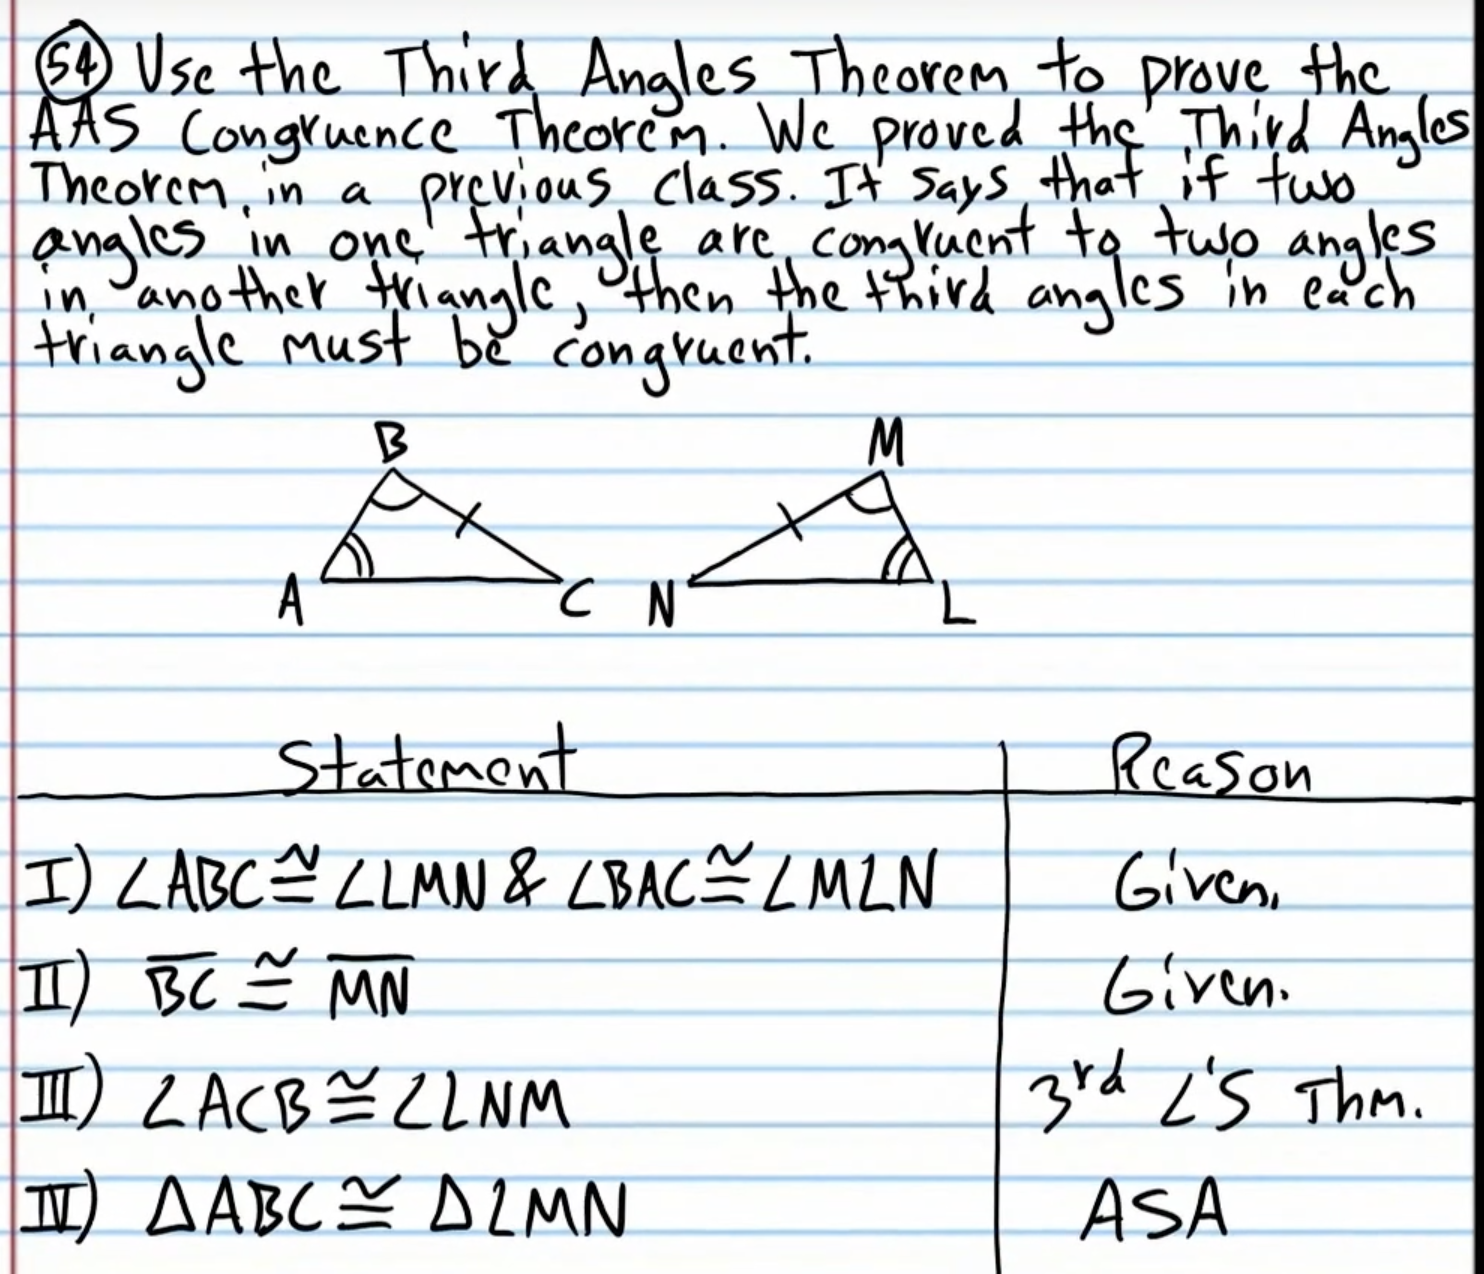 54 Use the Third Angles Theorem to prove the
AAS Congruence Theorem. We proved the Third Angles
Theorem in a previous class. It says that if two
angles in one triangle are congruent to two angles
in another triangle, then the third angles in each
triangle must be congruent.
B M
A C N L
Statement Reason
I) ∠ABC ≅ ∠LMN & ∠BAC ≅ ∠MLN Given.
II) B̅C̅ ≅ M̅N̅ Given.
III) ∠ACB ≅ ∠LNM 3rd ∠'S Thm.
IV) ΔABC ≅ ΔLMN ASA